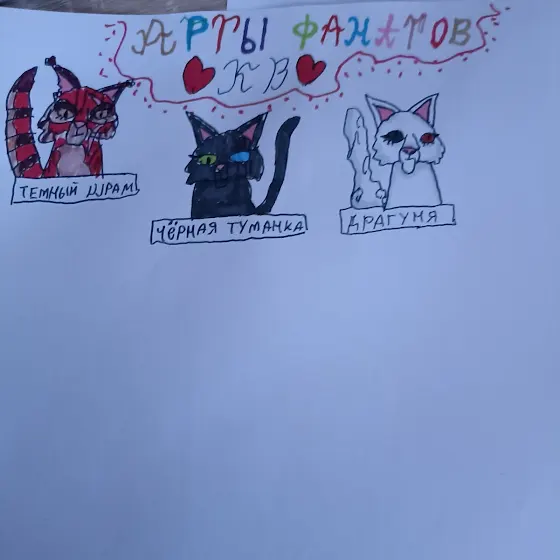 АРТЫ ФАНАТОВ
КВ
ТЕМНЫЙ ШРАМ
ЧЁРНАЯ ТУМАНКА
ДРАГУНЯ